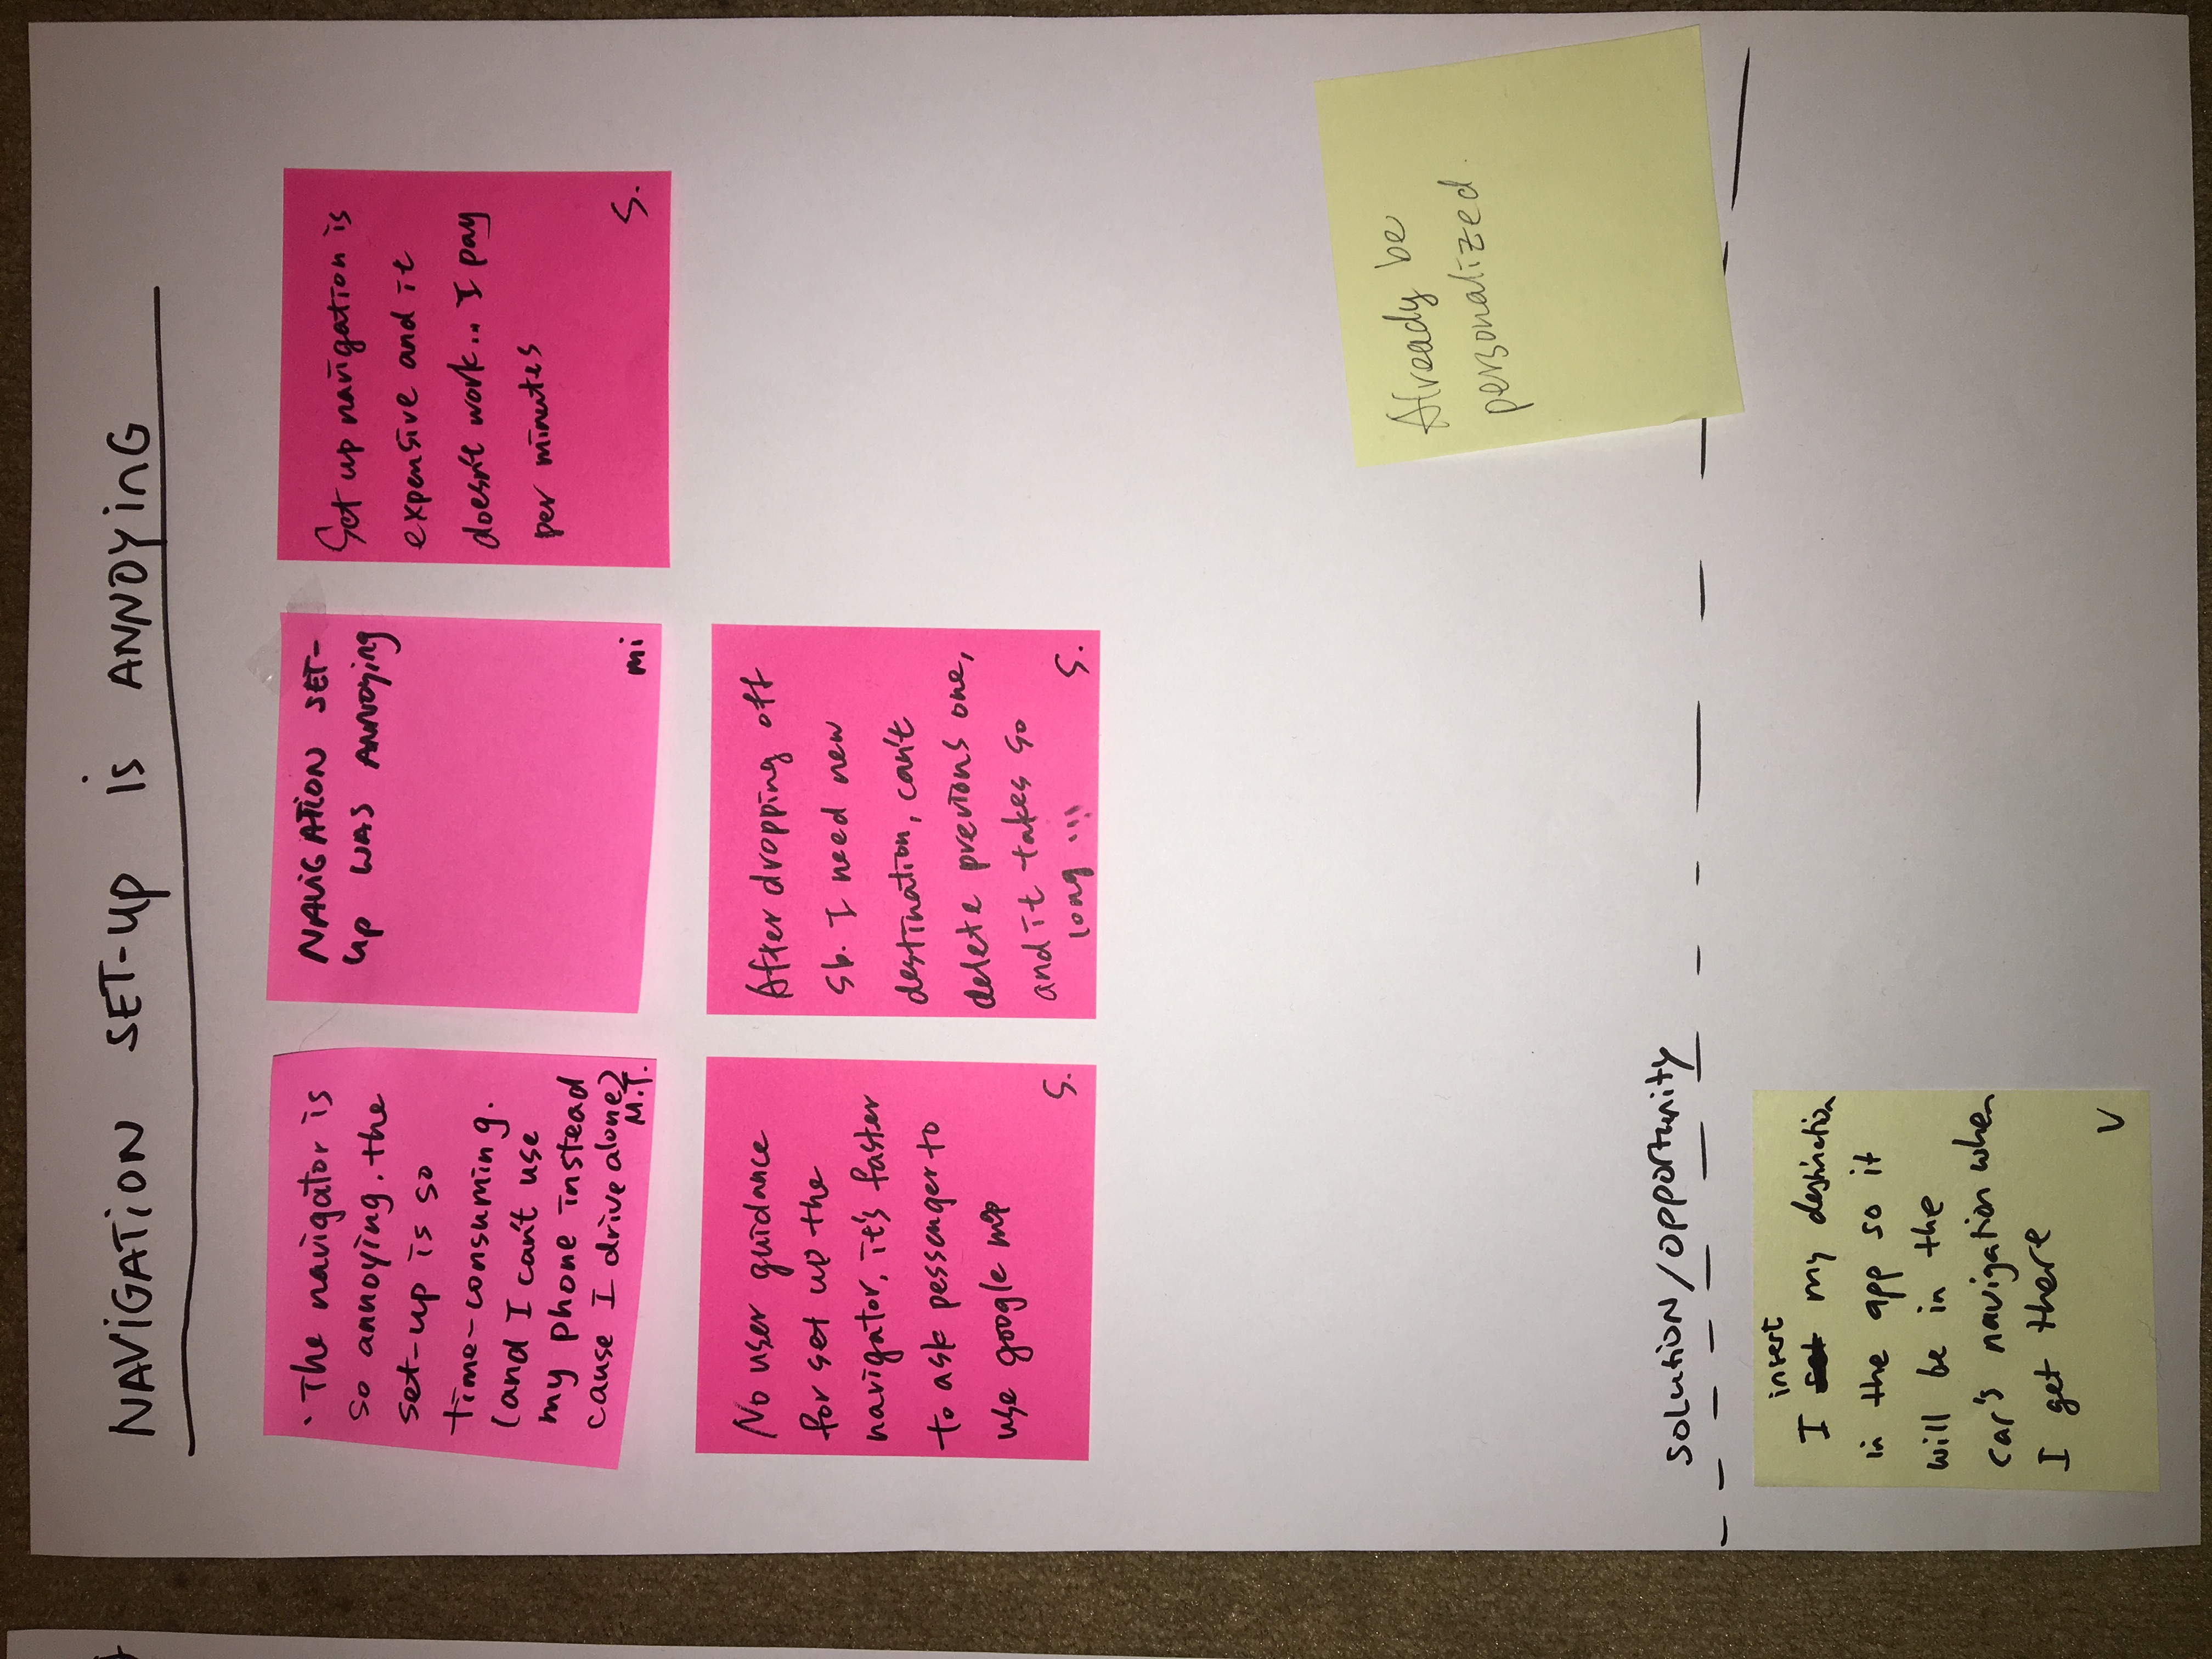 NAVIGATION SET-UP is ANNOYING
· The navigator is
so annoying. the
set-up is so
time-consuming.
(and I can't use
my phone instead
cause I drive alone)
M.T.
NAVIGATION SET-
UP WAS ANNOYING
mi
Set up navigation is
expensive and it
doesn't work... I pay
per minutes
S.
No user guidance
for set up the
navigator, it's faster
to ask pessenger to
use google map
S.
After dropping off
sb. I need new
destination, can't
delete previous one,
and it takes so
long !!!
S.
Already be
personalized.
SOLUTION/OPPORTUNITY
insert
I set my destination
in the app so it
will be in the
car's navigation when
I get there
V